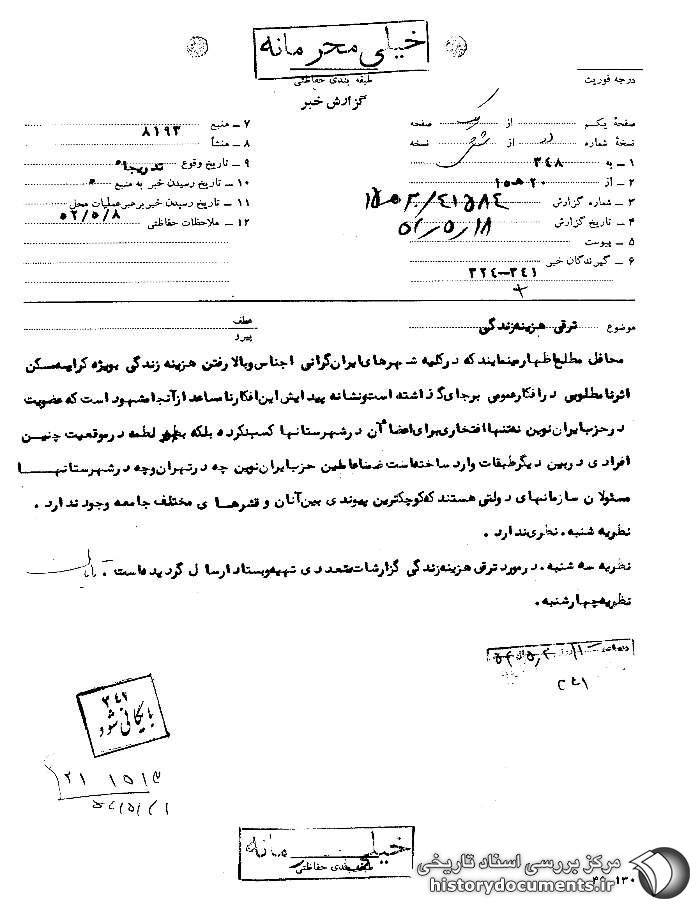 خیلی محرمانه
طبقه بندی حفاظتی
گزارش خبر
درجه فوریت
صفحهٔ یکم از یک صفحه
نسخهٔ شماره از شش نسخه
۱ ـ به ۳۴۸
۲ ـ از ۲۰ ه‍ ۱۵
۳ ـ شماره گزارش
۴ ـ تاریخ گزارش ۵۲/۵/۱۸
۵ ـ پیوست
۶ ـ گیرندگان خبر ۳۴۱-۳۲۴
۷ ـ منبع ۸۱۹۳
۸ ـ منشأ
۹ ـ تاریخ وقوع تدریجاً
۱۰ ـ تاریخ رسیدن خبر به منبع
۱۱ ـ تاریخ رسیدن خبر برهبر عملیات محل ۵۲/۵/۸
۱۲ ـ ملاحظات حفاظتی
موضوع ترقی هزینه زندگی
عطف
پیرو
محافل مطلع اظهار مینمایند که در کلیه شهرهای ایران گرانی اجناس و بالا رفتن هزینه زندگی بویژه کرایه مسکن
اثر نامطلوبی در افکار عمومی برجای گذاشته است و نشانه پیدایش این افکار نامساعد از آنجا مشهود است که عضویت
در حزب ایران نوین نه تنها افتخاری برای اعضاء آن در شهرستانها کسب نکرده بلکه لطمه در موقعیت چنین
افرادی در بین دیگر طبقات وارد ساخته است ضمناً عاملین حزب ایران نوین چه در تهران و چه در شهرستانها
مسئولان سازمانهای دولتی هستند که کوچکترین پیوندی بین آنان و قشرهای مختلف جامعه وجود ندارد .
نظریه شنبه . نظری ندارد .
نظریه سه شنبه . در مورد ترقی هزینه زندگی گزارشات متعددی تهیه و بستاد ارسال گردیده است .
نظریه چهارشنبه .
۳۴۱
۳۴۱
بایگانی شود
خیلی محرمانه
طبقه بندی حفاظتی
مرکز بررسی اسناد تاریخی
historydocuments.ir